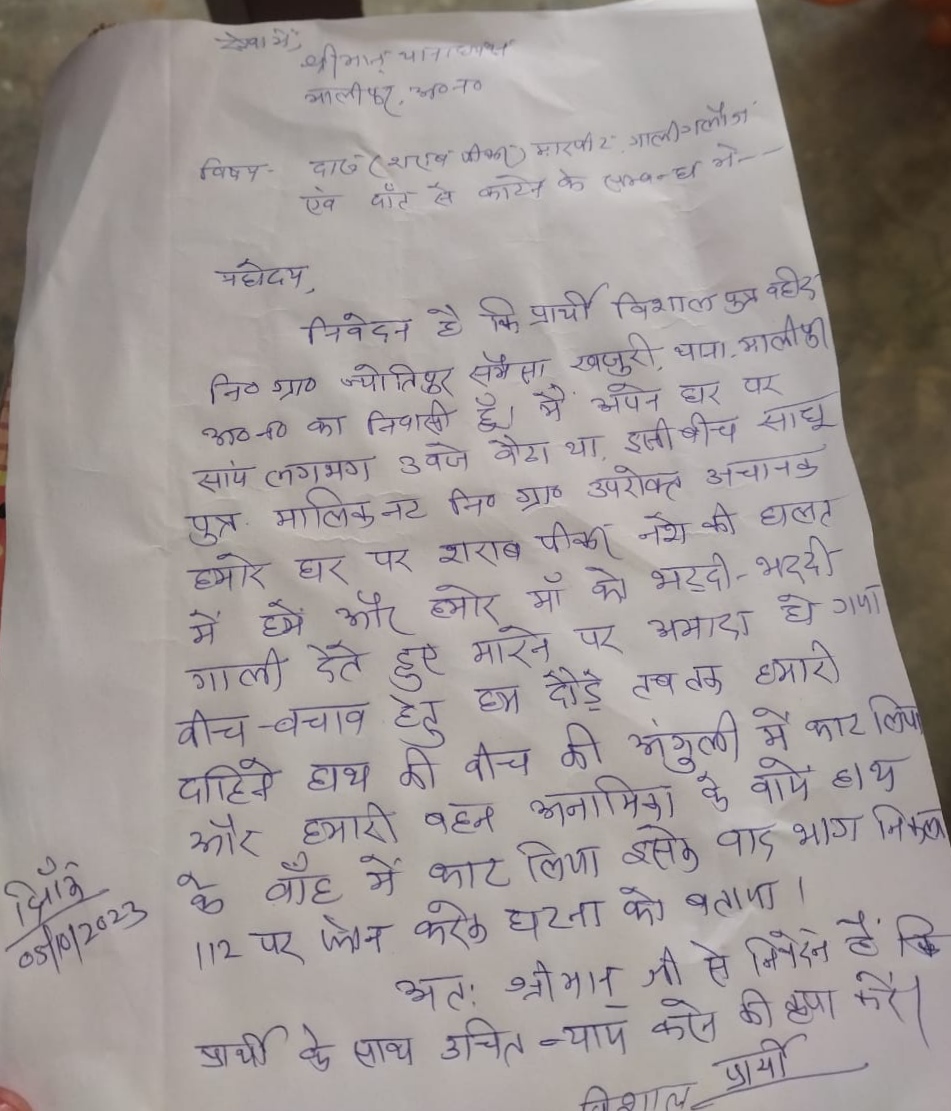 सेवा में,
श्रीमान् थानाध्यक्ष
मालीपुर, अ०न०
विषय- दारू (शराब पीकर) मारपीट, गालीगलौज
एंव दाँत से काटने के सम्बन्ध में--
महोदय,
निवेदन है कि प्रार्थी विशाल पुत्र
नि० ग्रा० ज्योतिपुर खजुरी, थाना. मालीपुर
अ०न० का निवासी हूँ। मैं अपने घर पर
सांय लगभग 3 बजे बैठा था, इसी बीच साधू
पुत्र मालिकनट नि० ग्रा० उपरोक्त अचानक
हमारे घर पर शराब पीकर नशे की हालत
में हमें और हमारे माँ को भद्दी-भद्दी
गाली देते हुए मारने पर अमादा हो गया
बीच-बचाव हेतु हम दौड़े तब तक हमारी
दाहिने हाथ की बीच की अंगुली में काट लिया
और हमारी बहन अनामिका के बायें हाथ
के बाँह में काट लिया इसके बाद भाग निकला
112 पर फोन करके घटना को बताया।
अतः श्रीमान् जी से निवेदन है कि
प्रार्थी के साथ उचित न्याय करने की कृपा करें।
प्रार्थी
विशाल
दिनाँक
05/10/2023